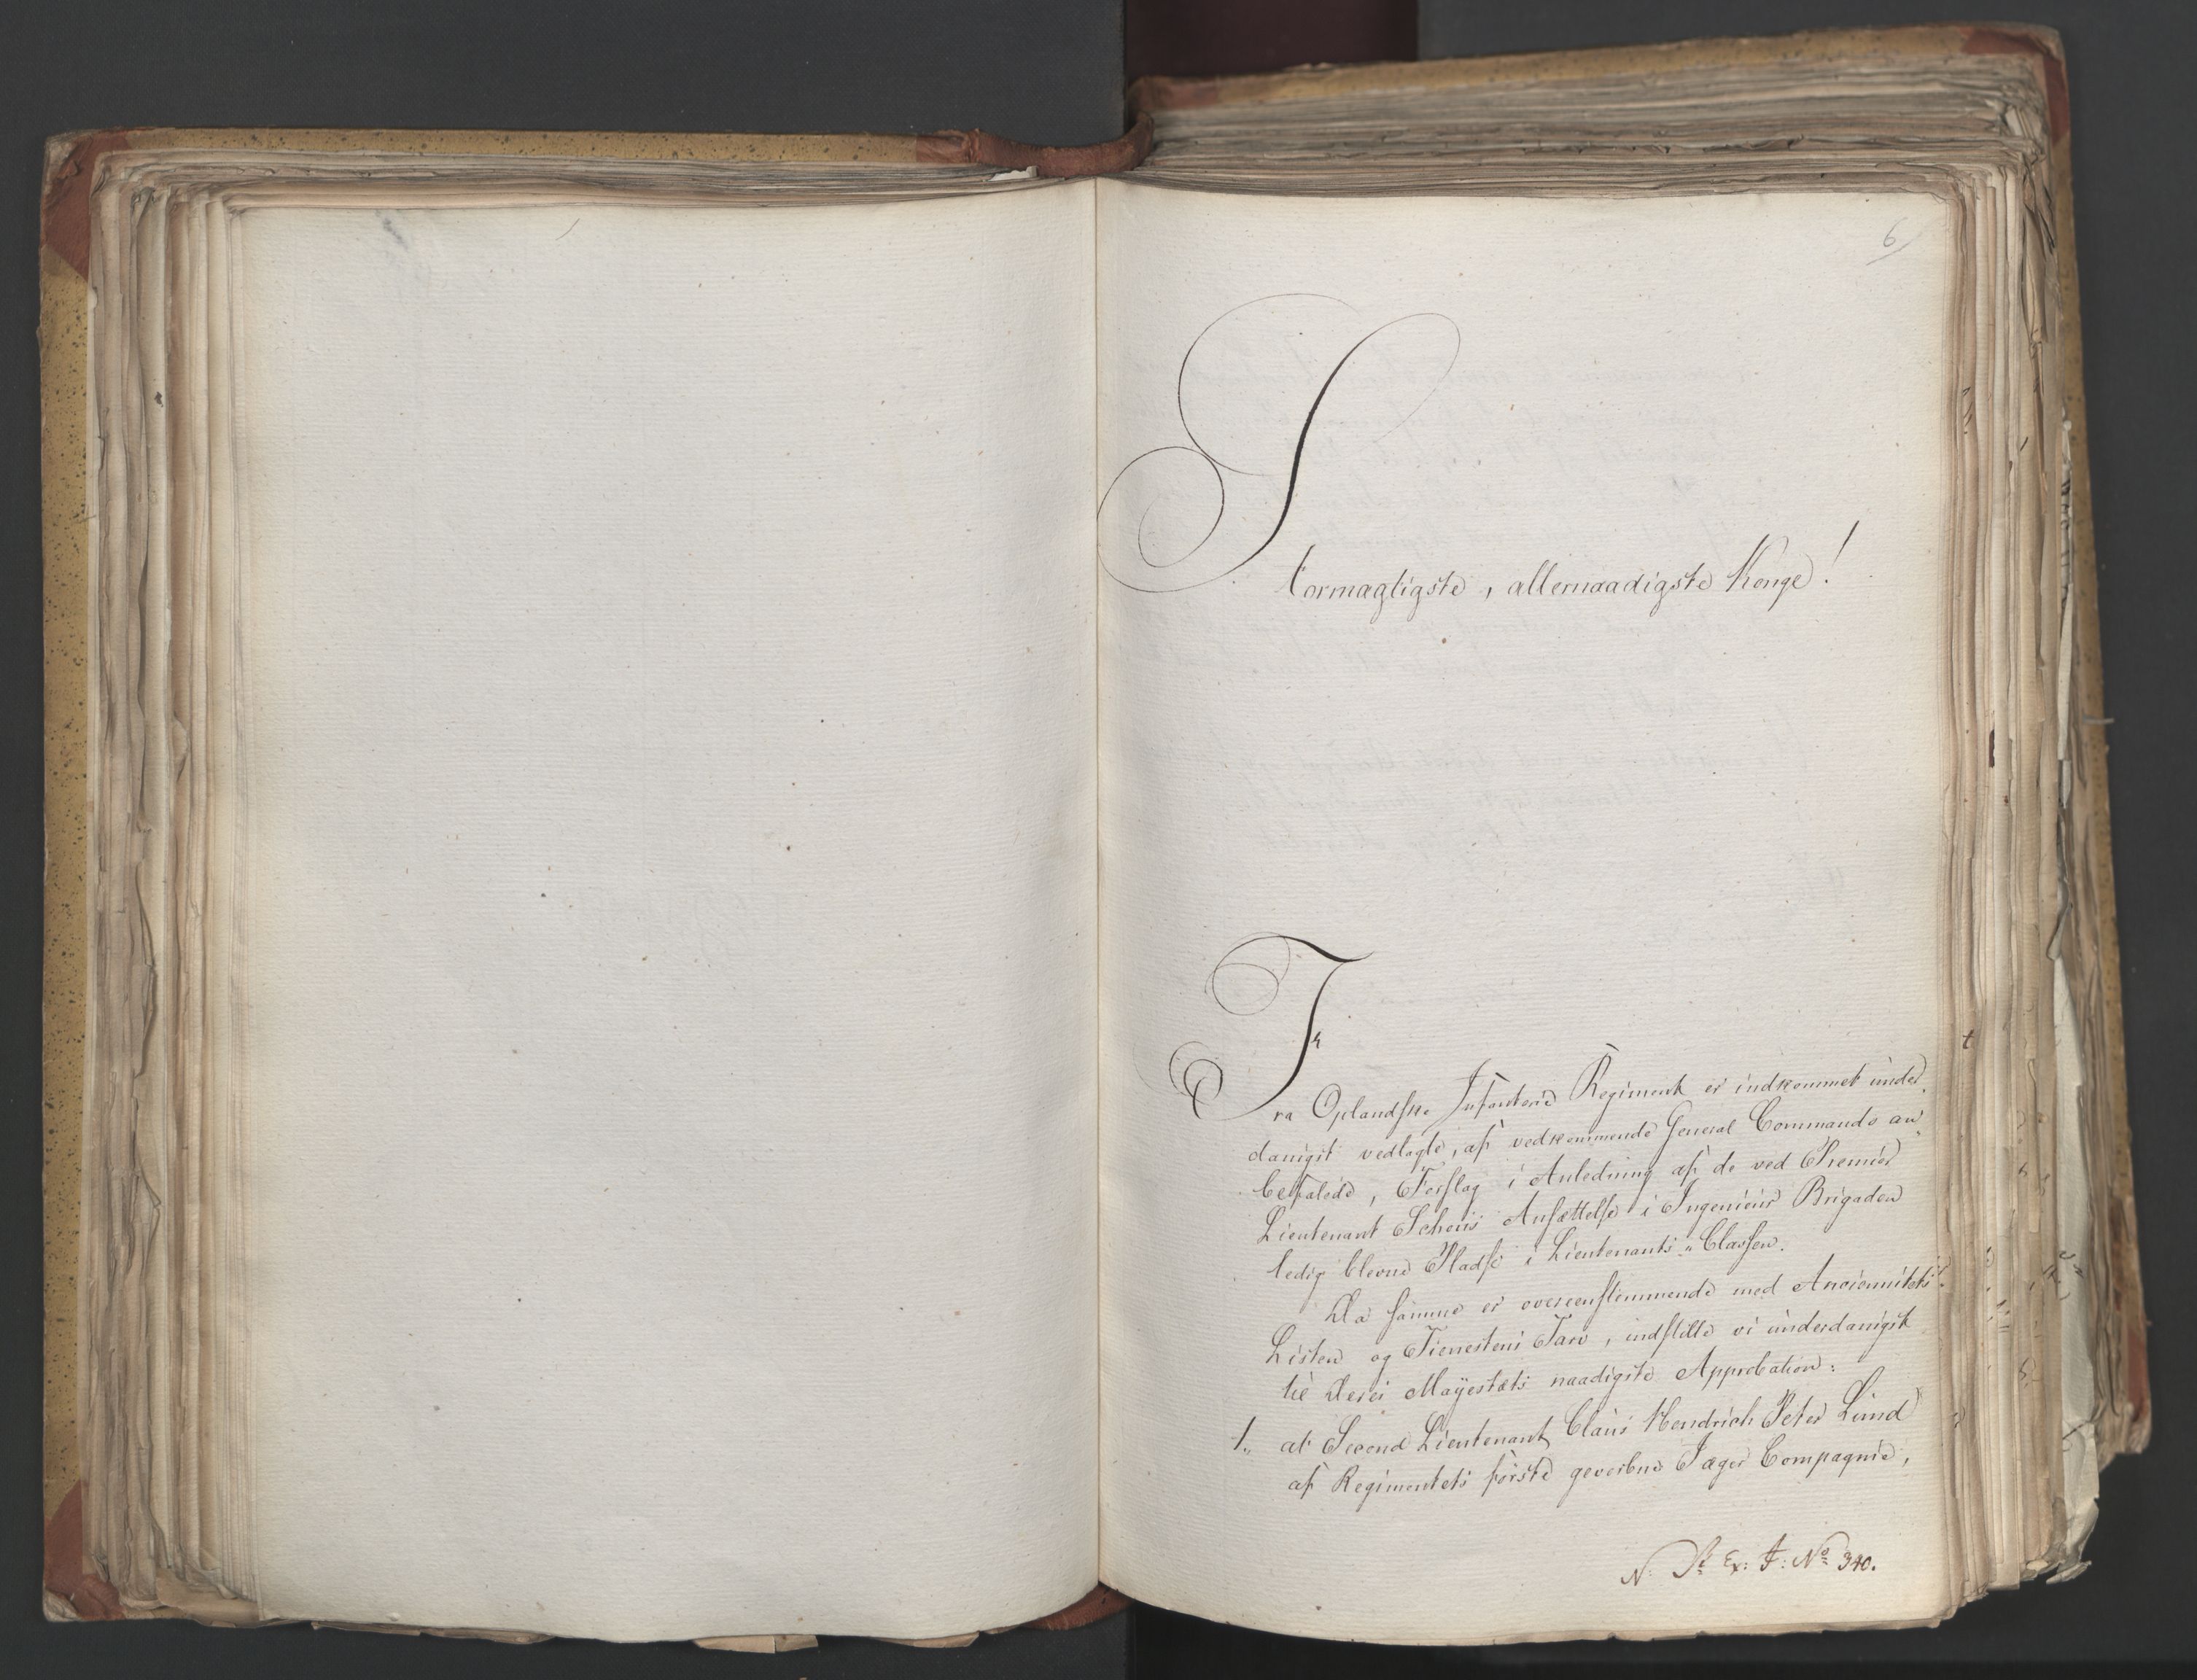 6
Stormægtigste, allernaadigste Konge!
Fra Oplandske Infanterie Regiment er indkommet under
danigst vedlagte, af vedkommende General Commando an
befalede, Forslag i Anledning af de ved Premier
Lieutenant Scheis Ansættelse i Ingenieur Brigaden
ledig blevne Pladse i Lieutenants-Classen.
Da samme er overeenstemmende med Anciennitets-
Listen og Tienestens Tarv, indstille vi underdanigst
til Deres Mayestæts naadigste Approbation:
1., at Second Lieutenant Claus Hendrich Peter Lund
af Regimentets første geverbne Jæger Compagnie,
N. St. Ex: J: No 340.